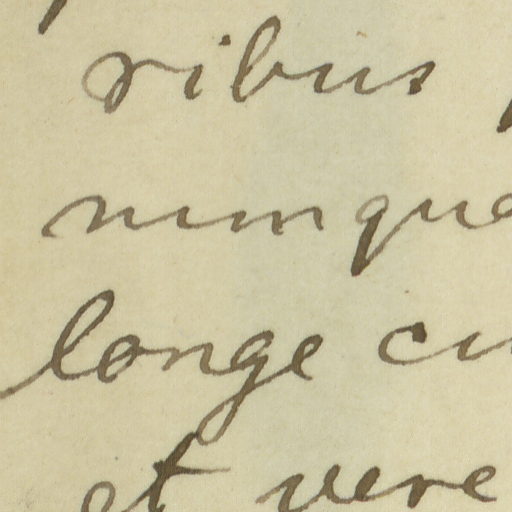 ribus
numque
longe cu
et vere